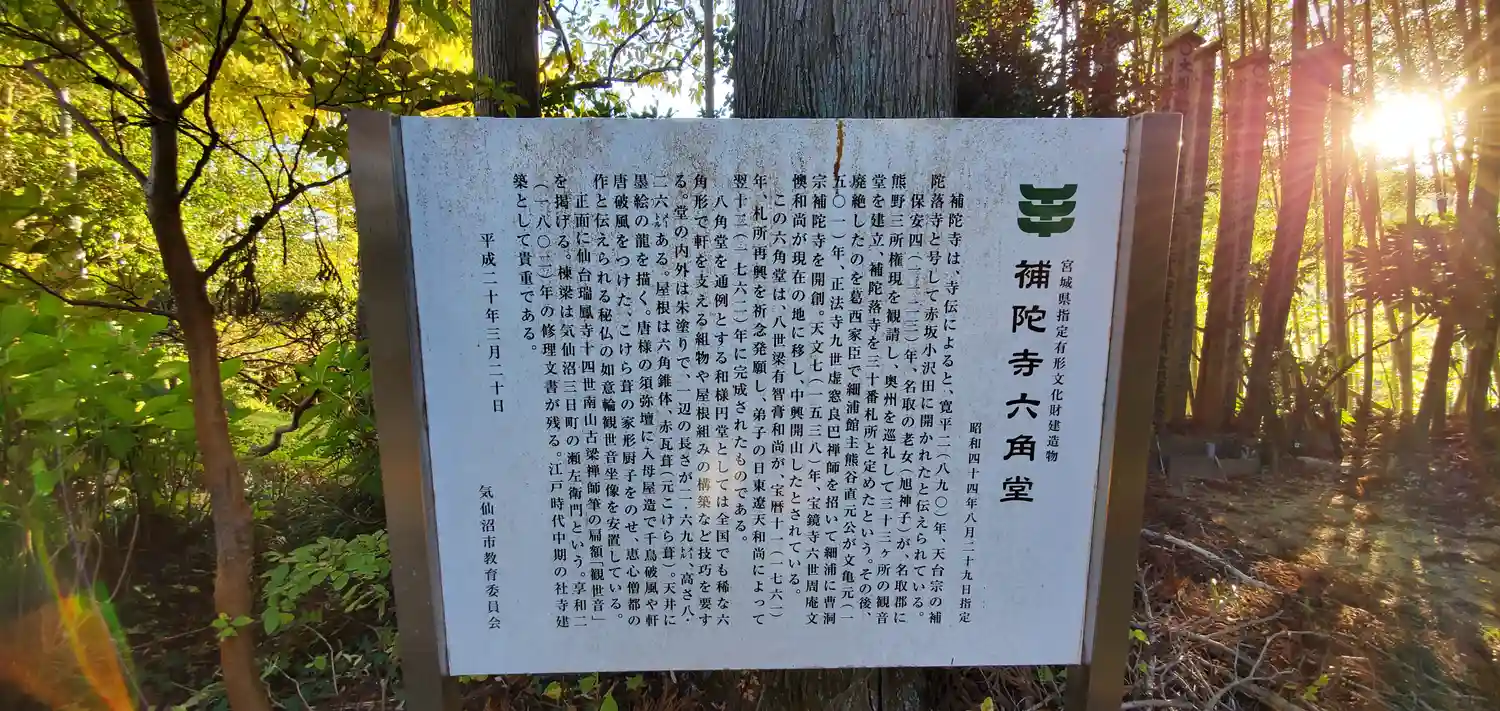 宮城県指定有形文化財建造物
補陀寺六角堂
昭和四十四年八月二十九日指定
補陀寺は、寺伝によると、寛平二(八九〇)年、天台宗の補
陀落寺と号して赤坂小沢田に開かれたと伝えられている。
保安四(一一二三)年、名取の老女(旭神子)が、名取郡に
熊野三所権現を観請し、奥州を巡礼して三十三ヶ所の観音
堂を建立、補陀落寺を三十番札所と定めたという。その後、
廃絶したのを葛西家臣で細浦館主熊谷直元公が文亀元(一
五〇一)年、正法寺九世虚窓良巴禅師を招いて細浦に曹洞
宗補陀寺を開創。天文七(一五三八)年、宝鏡寺六世周庵文
懊和尚が現在の地に移し、中興開山したとされている。
この六角堂は、八世梁有智膏和尚が、宝暦十一(一七六一)
年、札所再興を祈念発願し、弟子の日東遼天和尚によって
翌十二(一七六二)年に完成されたものである。
八角堂を通例とする和様円堂としては全国でも稀な六
角形で軒を支える組物や屋根組みの構築など技巧を要す
る。堂の内外は朱塗りで、一辺の長さが二・六九㍍、高さ八・
二六㍍ある。屋根は六角錐体、赤瓦葺(元こけら葺)天井に
墨絵の龍を描く。唐様の須弥壇に入母屋造で千鳥破風や軒
唐破風をつけた、こけら葺の家形厨子をのせ、恵心僧都の
作と伝えられる秘仏の如意輪観世音坐像を安置している。
正面に仙台瑞鳳寺十四世南山古梁禅師筆の扁額「観世音」
を掲げる。棟梁は気仙沼三日町の瀬左衛門という。享和二
(一八〇二)年の修理文書が残る。江戸時代中期の社寺建
築として貴重である。
平成二十年三月二十日
気仙沼市教育委員会